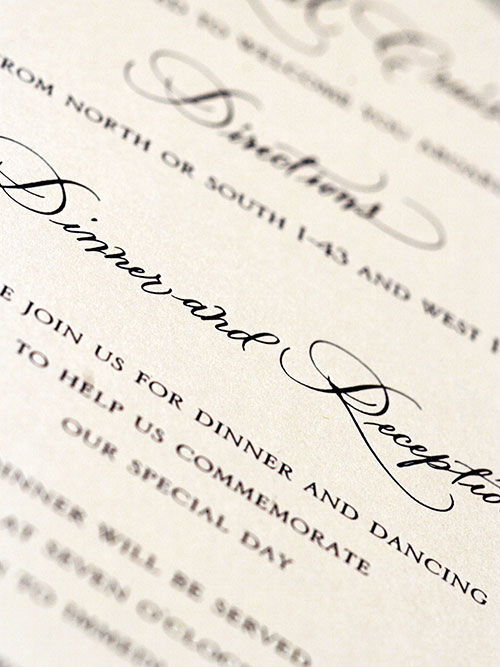 TO WELCOME YOU
Directions
FROM NORTH OR SOUTH I-43 AND WEST
Dinner and Receptio
E JOIN US FOR DINNER AND DANCING
TO HELP US COMMEMORATE
OUR SPECIAL DAY
INNER WILL BE SERVED
AT SEVEN O'CLOC